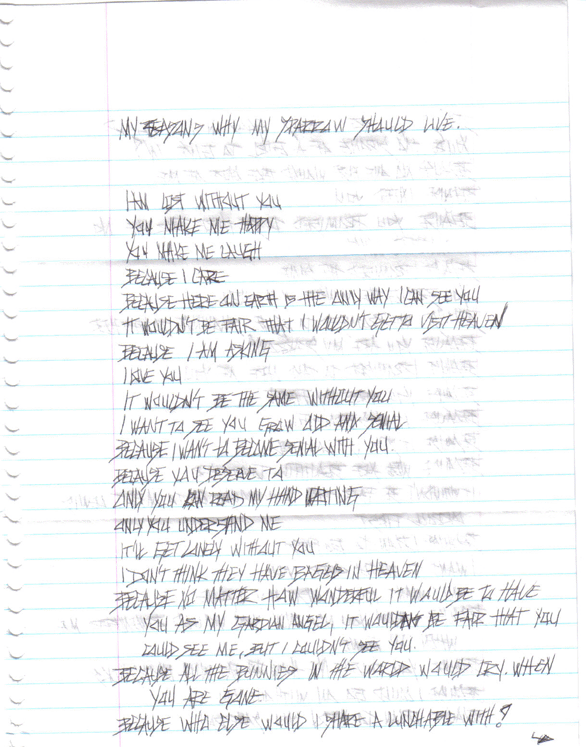 MY REASONS WHY MY SPARROW SHOULD LIVE.
I AM LOST WITHOUT YOU
YOU MAKE ME HAPPY
YOU MAKE ME LAUGH
BECAUSE I CARE
BECAUSE HERE ON EARTH IS THE ONLY WAY I CAN SEE YOU
IT WOULDN'T BE FAIR THAT I WOULDN'T GET TO VISIT HEAVEN
BECAUSE I AM ASKING
I LOVE YOU
IT WOULDN'T BE THE SAME WITHOUT YOU
I WANT TO SEE YOU GROW OLD AND SENIAL
BECAUSE I WANT TO BECOME SENIAL WITH YOU.
BECAUSE YOU DESERVE TO
ONLY YOU CAN READ MY HAND WRITING
ONLY YOU UNDERSTAND ME
IT'LL GET LONELY WITHOUT YOU
I DON'T THINK THEY HAVE IN HEAVEN
BECAUSE NO MATTER HOW WONDERFUL IT WOULD BE TO HAVE
YOU AS MY GARDIAN ANGEL, IT WOULDN'T BE FAIR THAT YOU
COULD SEE ME, BUT I COULDN'T SEE YOU.
BECAUSE ALL THE BUNNIES IN THE WORLD WOULD CRY. WHEN
YOU ARE GONE.
BECAUSE WHO ELSE WOULD I SHARE A LUNCHABLE WITH?